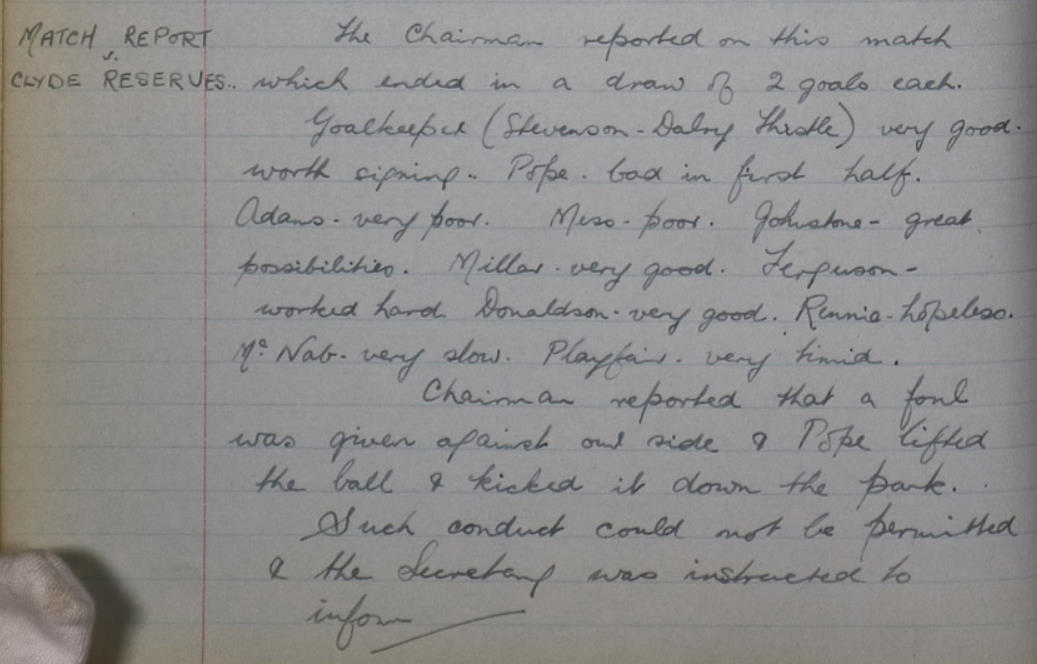 MATCH REPORT
v.
CLYDE RESERVES..
The Chairman reported on this match
which ended in a draw of 2 goals each.
Goalkeeper (Stevenson - Dalry Thistle) very good.
worth signing.. Pope. bad in first half.
Adams - very poor. Miso - poor. Johnstone - great
possibilities. Millar - very good. Ferguson -
worked hard. Donaldson - very good. Rennie - hopeless.
Mc Nab - very slow. Playfair. very timid.
Chairman reported that a foul
was given against our side & Pope lifted
the ball & kicked it down the park.
Such conduct could not be permitted
& the Secretary was instructed to
inform